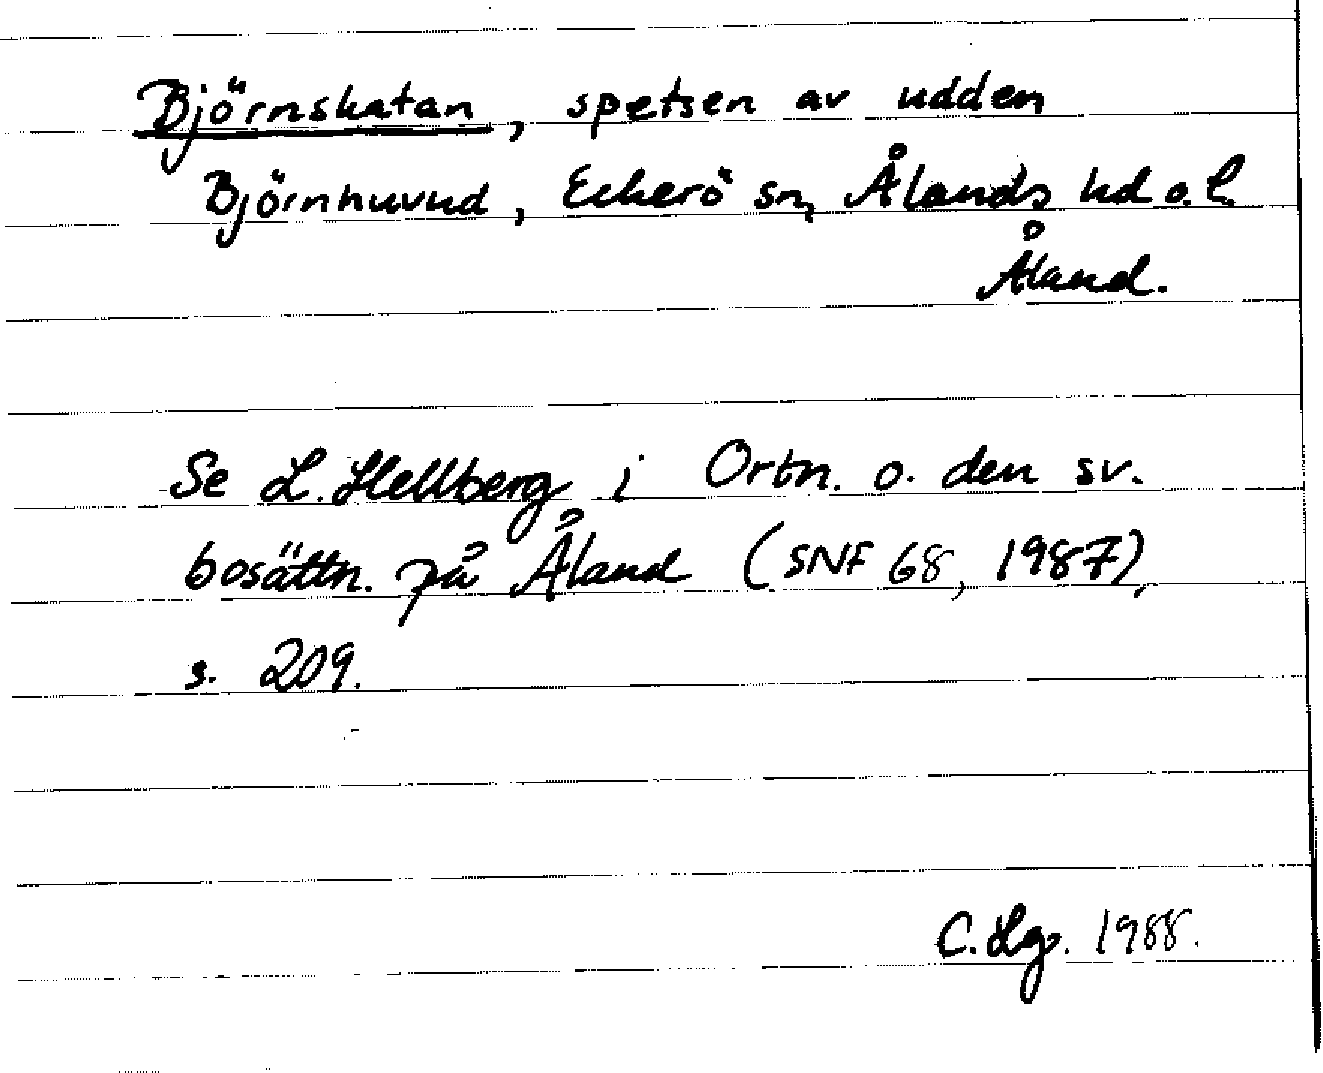 Björnskatan, spetsen av udden
Björnhuvud, Eckerö sn, Ålands hd o. l.
Åland.
Se L. Hellberg i Ortn. o. den sv.
bosättn. på Åland (SNF 68, 1987),
s. 209.
C. Hg. 1988.